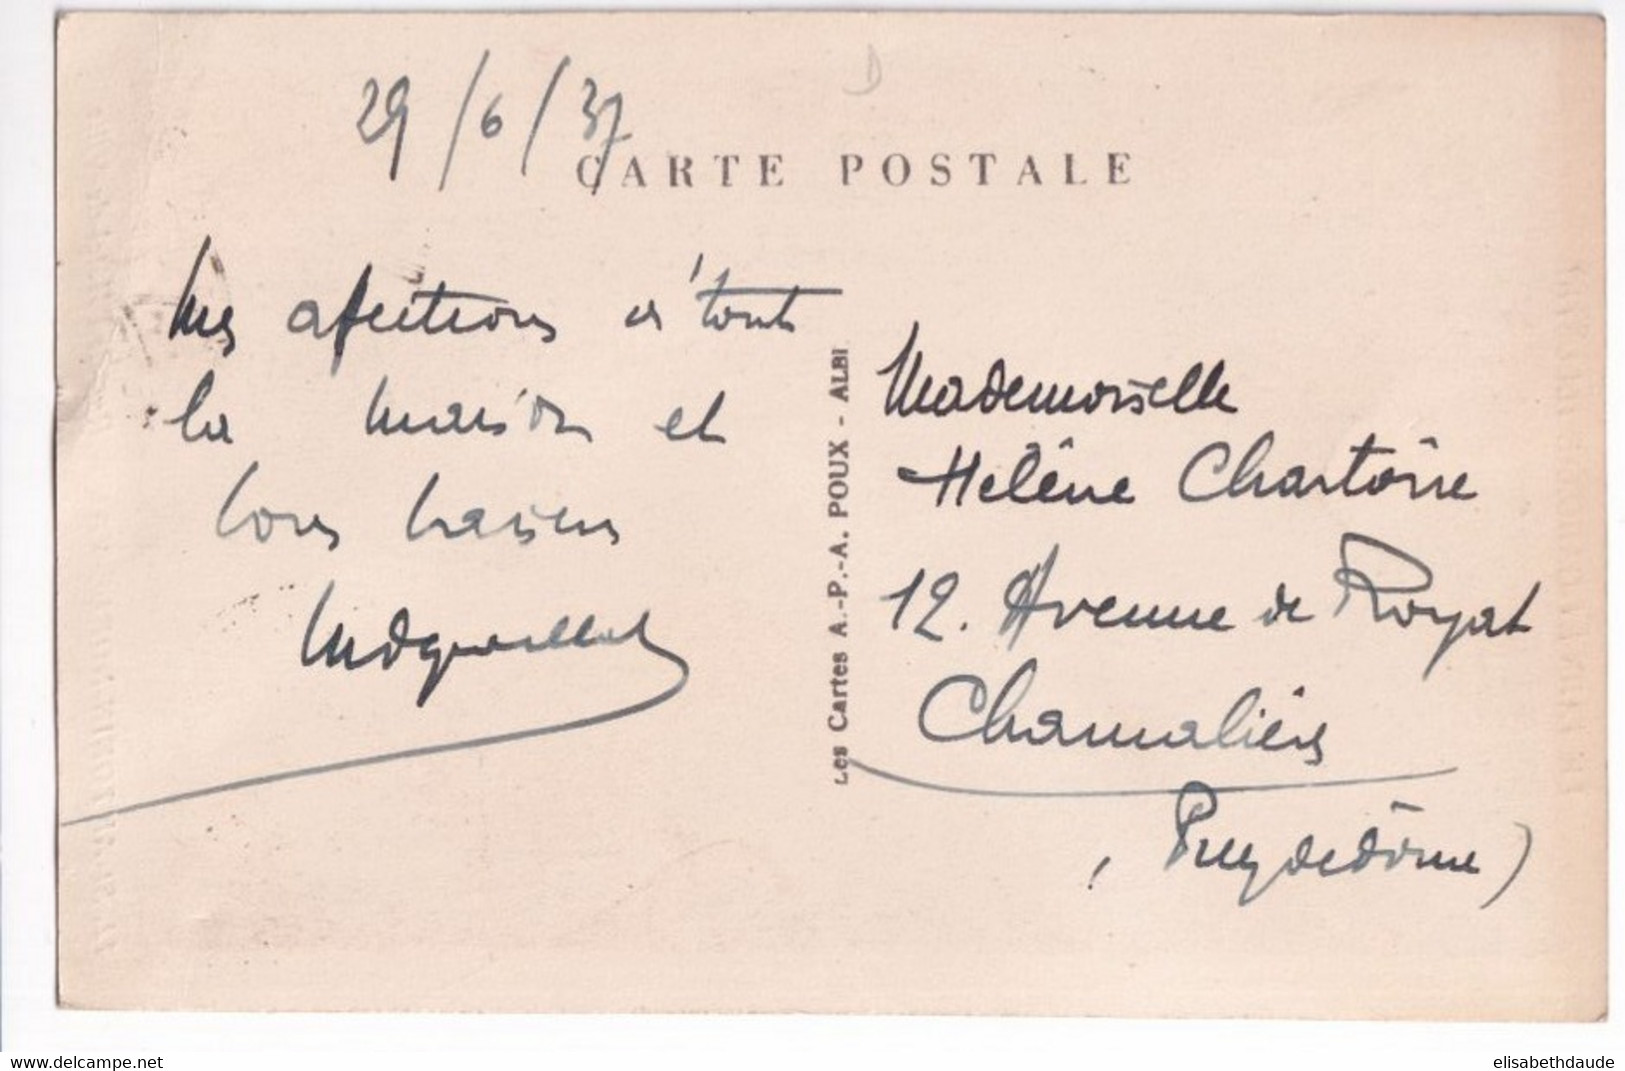 29/6/37
CARTE POSTALE
Mes afections à toute
la maison et
bons baisers
Les Cartes A.-P.-A. POUX - ALBI
Mademoiselle
Hélène Chartoire
12. Avenue de Royat
Chamalières
(Puy de dôme)
www.delcampe.net
elisabethdaude